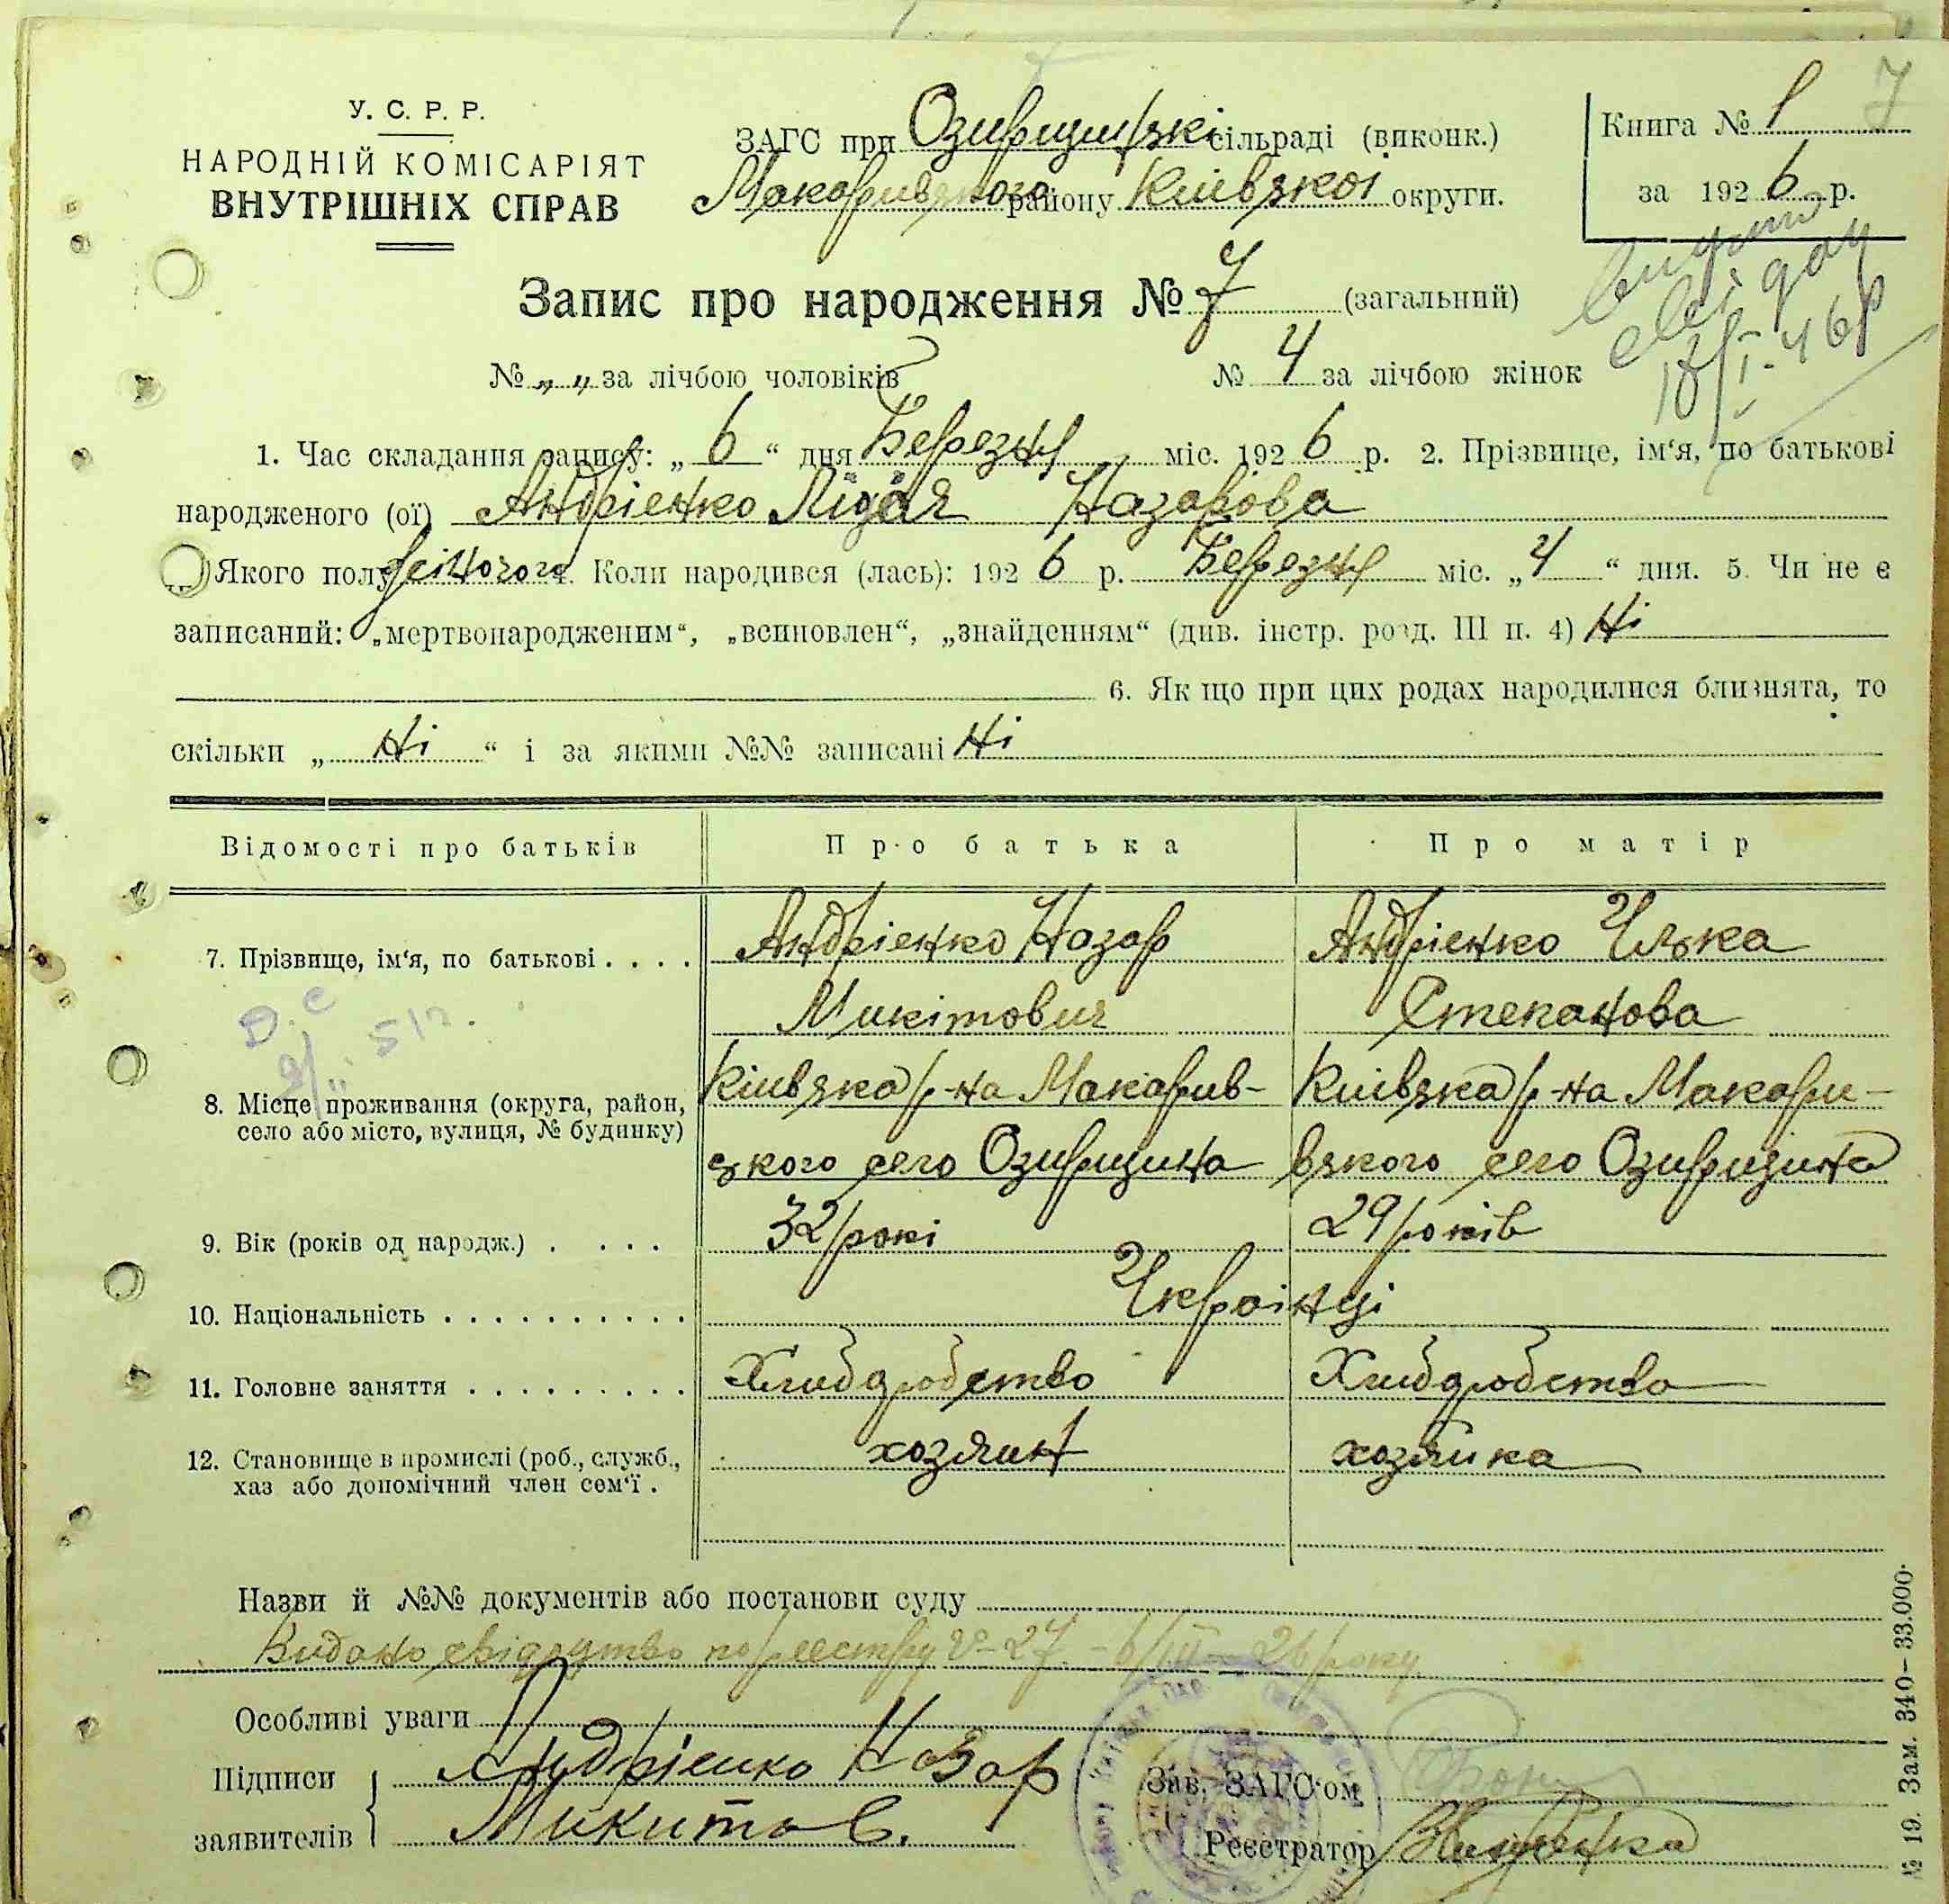 У. С. Р. Р.
НАРОДНІЙ КОМІСАРІЯТ
ВНУТРІШНІХ СПРАВ
ЗАГС при Озирщинські сільраді (виконк.)
Макаривского району Киівскоі округи.
Книга № 1 7
за 1926 р.
18/I-46р
Запис про народження № 7 (загальний)
№ „ „ за лічбою чоловіків
№ 4 за лічбою жінок
1. Час складання запису: „ 6 “ дня Березня міс. 1926 р. 2. Прізвище, ім‘я, по батькові
народженого (ої) Андріенко Лідія Назарова
Якого полу Жіночого. Коли народився (лась): 1926 р. Березня міс. „ 4 “ дня. 5. Чи не є
записаний: „мертвонародженим“, „всиновлен“, „знайденням“ (див. інстр. розд. III п. 4) Ні
6. Як що при цих родах народилися близнята, то
скільки „ Ні “ і за якими №№ записані Ні
Відомості про батьків Про батька Про матір
7. Прізвище, ім‘я, по батькові . . . . Андріенко Назар Андріенко Улька
Микітович Степанова
8. Місце проживання (округа, район, село або місто, вулиця, № будинку)
Кіивска р-на Макарив- Киівска р-на Макари-
ского село Озирщина вского село Озирщина
9. Вік (років од народж.) . . . . 32 рокі 29 років
10. Національність . . . . . . . . . . Украінці
11. Головне заняття . . . . . . . . . . Хлибдробство Хлибдробство
12. Становище в промислі (роб., служб., хазяін хозяйка
хаз або допомічний член сем‘ї .
Назви й №№ документів або постанови суду
Видано свідоцтво по реестру № 27 - 6/III - 26 року
Особливі уваги
Підписи заявителів
Андріенко Назар
Микитов.
Зав. ЗАГС‘ом
Реєстратор
№ 19. Зам. 340—33.000.